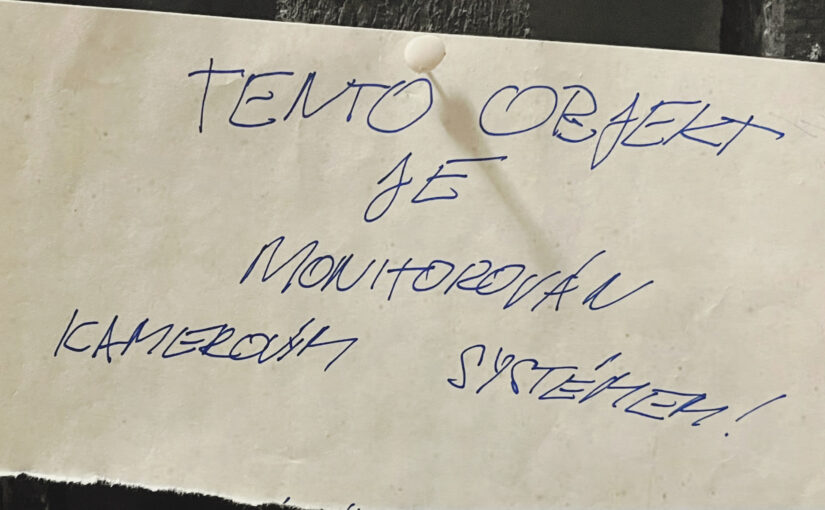 TENTO OBJEKT
JE
MONITOROVÁN
KAMEROVÝM SYSTÉMEM!